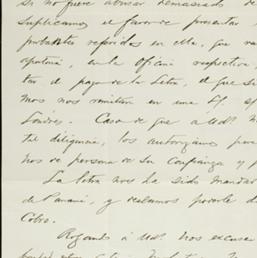 si no fuere abusar demasiado de
suplicamos el favor de presentar
probantes referidos en ella, que va
apoyan, en la oficina respectiva,
tar el pago de la Letra, el que se
mos, nos remitan en una Lf. of
Londres. Caso de que á Uds. n
tal diligencia, los autorizamos para
nos de persona de su confianza y p
La letra nos ha sido mandad
de Panamá, y
Cobro.
Rogando á Uds. nos excuse